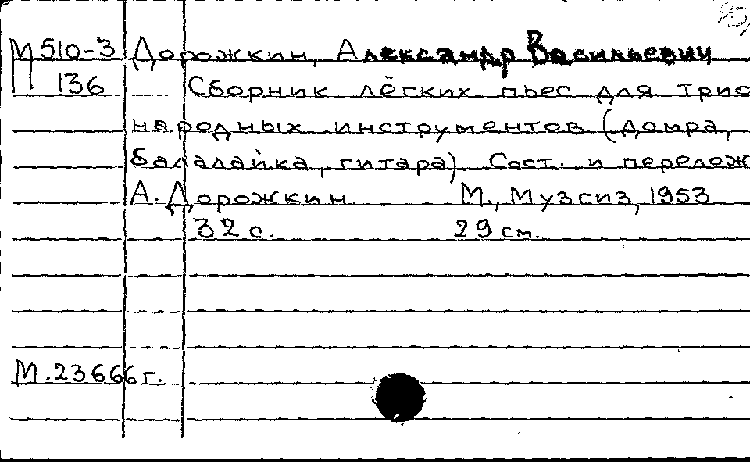 М 510-3 Дорожкин, Александр Васильевич
136 Сборник лёгких пьес для трио
народных инструментов (домра,
балалайка, гитара) Сост. и перелож
А. Дорожкин М., Музгиз, 1953
32 с. 29 см.
М.23666г.